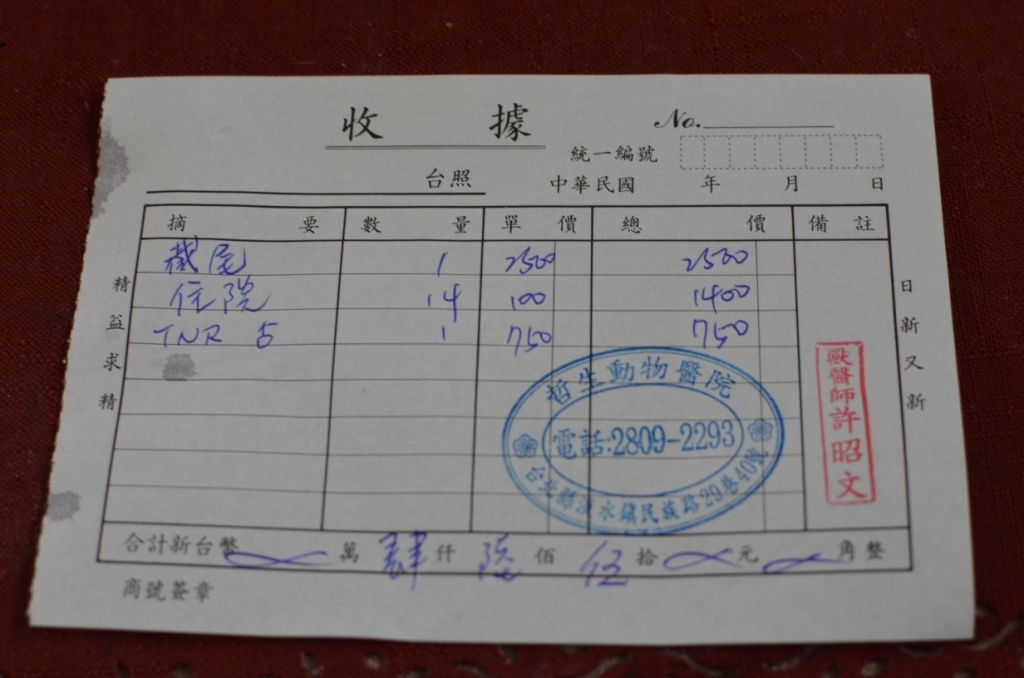 收據
No.
統一編號
台照
中華民國 年 月 日
摘要 數量 單價 總價 備註
截尾 1 2500 2500
住院 14 100 1400
TNR 1 750 750
精益求精
日新又新
哲生動物醫院
電話:2809-2293
台北縣淡水鎮民族路29巷40號
獸醫師許昭文
合計新台幣 萬肆仟陸佰伍拾 元 角整
商號簽章